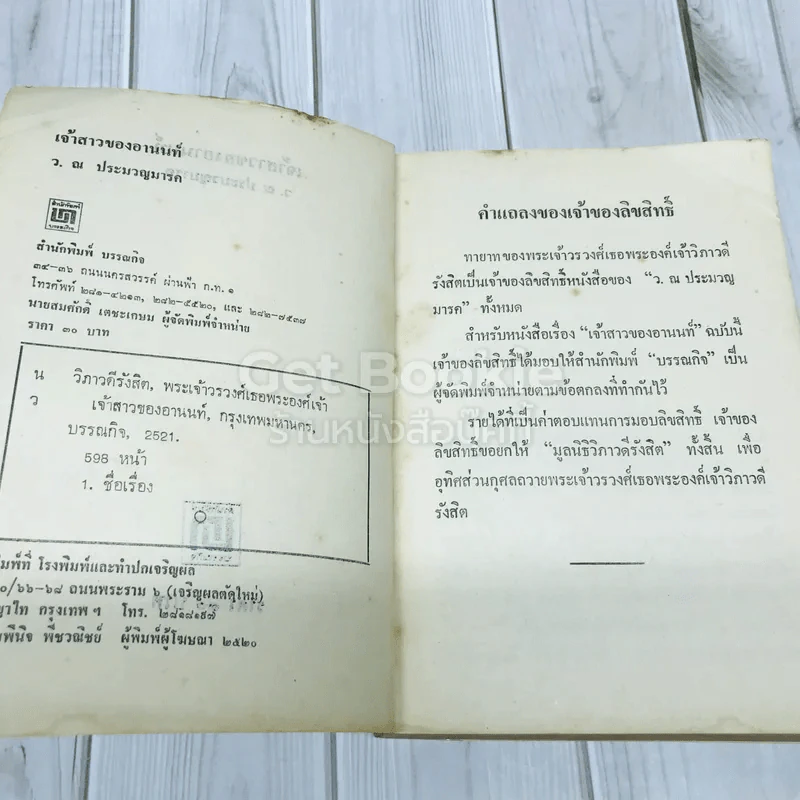 เจ้าสาวของอานนท์
ว. ณ ประมวญมารค
สำนักพิมพ์ บรรณกิจ
๓๔-๓๖ ถนนนครสวรรค์ ผ่านฟ้า ก.ท. ๑
โทรศัพท์ ๒๘๑-๔๒๑๓, ๒๘๒-๕๕๒๐, และ ๒๘๒-๗๕๓๗
นายสมศักดิ์ เตชะเกษม ผู้จัดพิมพ์จำหน่าย
ราคา ๓๐ บาท
น วิภาวดีรังสิต, พระเจ้าวรวงศ์เธอพระองค์เจ้า
ว เจ้าสาวของอานนท์, กรุงเทพมหานคร,
บรรณกิจ, 2521.
598 หน้า
1. ชื่อเรื่อง
โรงพิมพ์และทำปกเจริญผล
๖๖-๖๘ ถนนพระราม ๖ (เจริญผลตัดใหม่)
กรุงเทพฯ โทร.
พืชวณิชย์ ผู้พิมพ์ผู้โฆษณา ๒๕๒๐
คำแถลงของเจ้าของลิขสิทธิ์
ทายาทของพระเจ้าวรวงศ์เธอพระองค์เจ้าวิภาวดี
รังสิตเป็นเจ้าของลิขสิทธิ์หนังสือของ “ว. ณ ประมวญ
มารค” ทั้งหมด
สำหรับหนังสือเรื่อง “เจ้าสาวของอานนท์” ฉบับนี้
เจ้าของลิขสิทธิ์ได้มอบให้สำนักพิมพ์ “บรรณกิจ” เป็น
ผู้จัดพิมพ์จำหน่ายตามข้อตกลงที่ทำกันไว้
รายได้ที่เป็นค่าตอบแทนการมอบลิขสิทธิ์ เจ้าของ
ลิขสิทธิ์ขอยกให้ “มูลนิธิวิภาวดีรังสิต” ทั้งสิ้น เพื่อ
อุทิศส่วนกุศลถวายพระเจ้าวรวงศ์เธอพระองค์เจ้าวิภาวดี
รังสิต
Get Bookie
ร้านหนังสือบุ๊คกี้